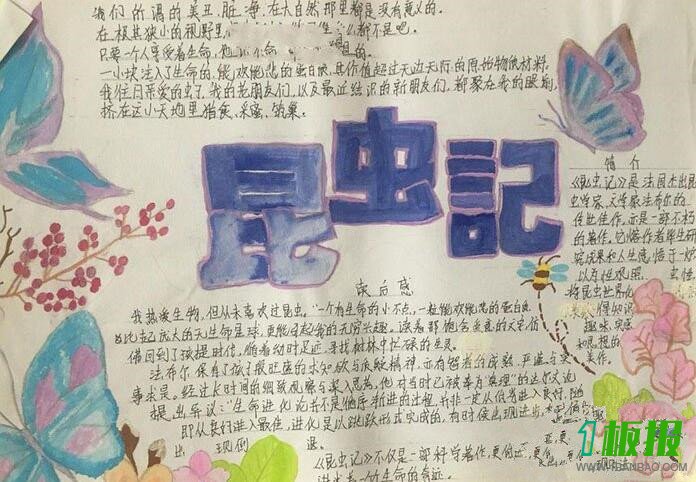 我们所谓的美丑、脏净,在大自然那里都是没有意义的。
在极其狭小的视野里,
都不是吧。
只要一个人享受着生命,他
一小块注入了生命的,能欢能悲的蛋白质,其价值超过无边无际的原始物质材料。
我往日亲爱的虫子,我的老朋友们,以及最近结识的新朋友们,都聚在我的眼前,
挤在这小天地里猎食、采蜜、筑巢。
昆虫記
简介
《昆虫记》是法国杰出昆
虫学家、文学家法布尔的
传世佳作,亦是一部不朽
的著作。它熔作者毕生研
究成果和人生感悟于一炉
以人性观照虫性
将昆虫世界化
趣味、美感
和思想的
美作。
读后感
我热爱生物,但从未喜欢过昆虫。"一个有生命的小不点,一粒能欢能悲的蛋白质
比起庞大的无生命星球,更能引起我的无穷兴趣。"读着那饱含真意的文字,仿
佛回到了孩提时代,循着幼时足迹,寻找树林中忙碌的生灵。
法布尔保有了孩子般旺盛的求知欲与良好精神,亦有智者的成熟、严谨与实
事求是。经过长时间的细致观察与深入思考,他对当时已被奉为真理的达尔文论
提出异议:"生命进化论并不是循序渐进的过程,并非一定从低劣进入良好,随
即从良好进入最佳,进化是以跳跃形式完成的,有时候出现进步,
出现倒退。
《昆虫记》不仅是一部科学著作,更
板报
WWW.1BANBAO.COM